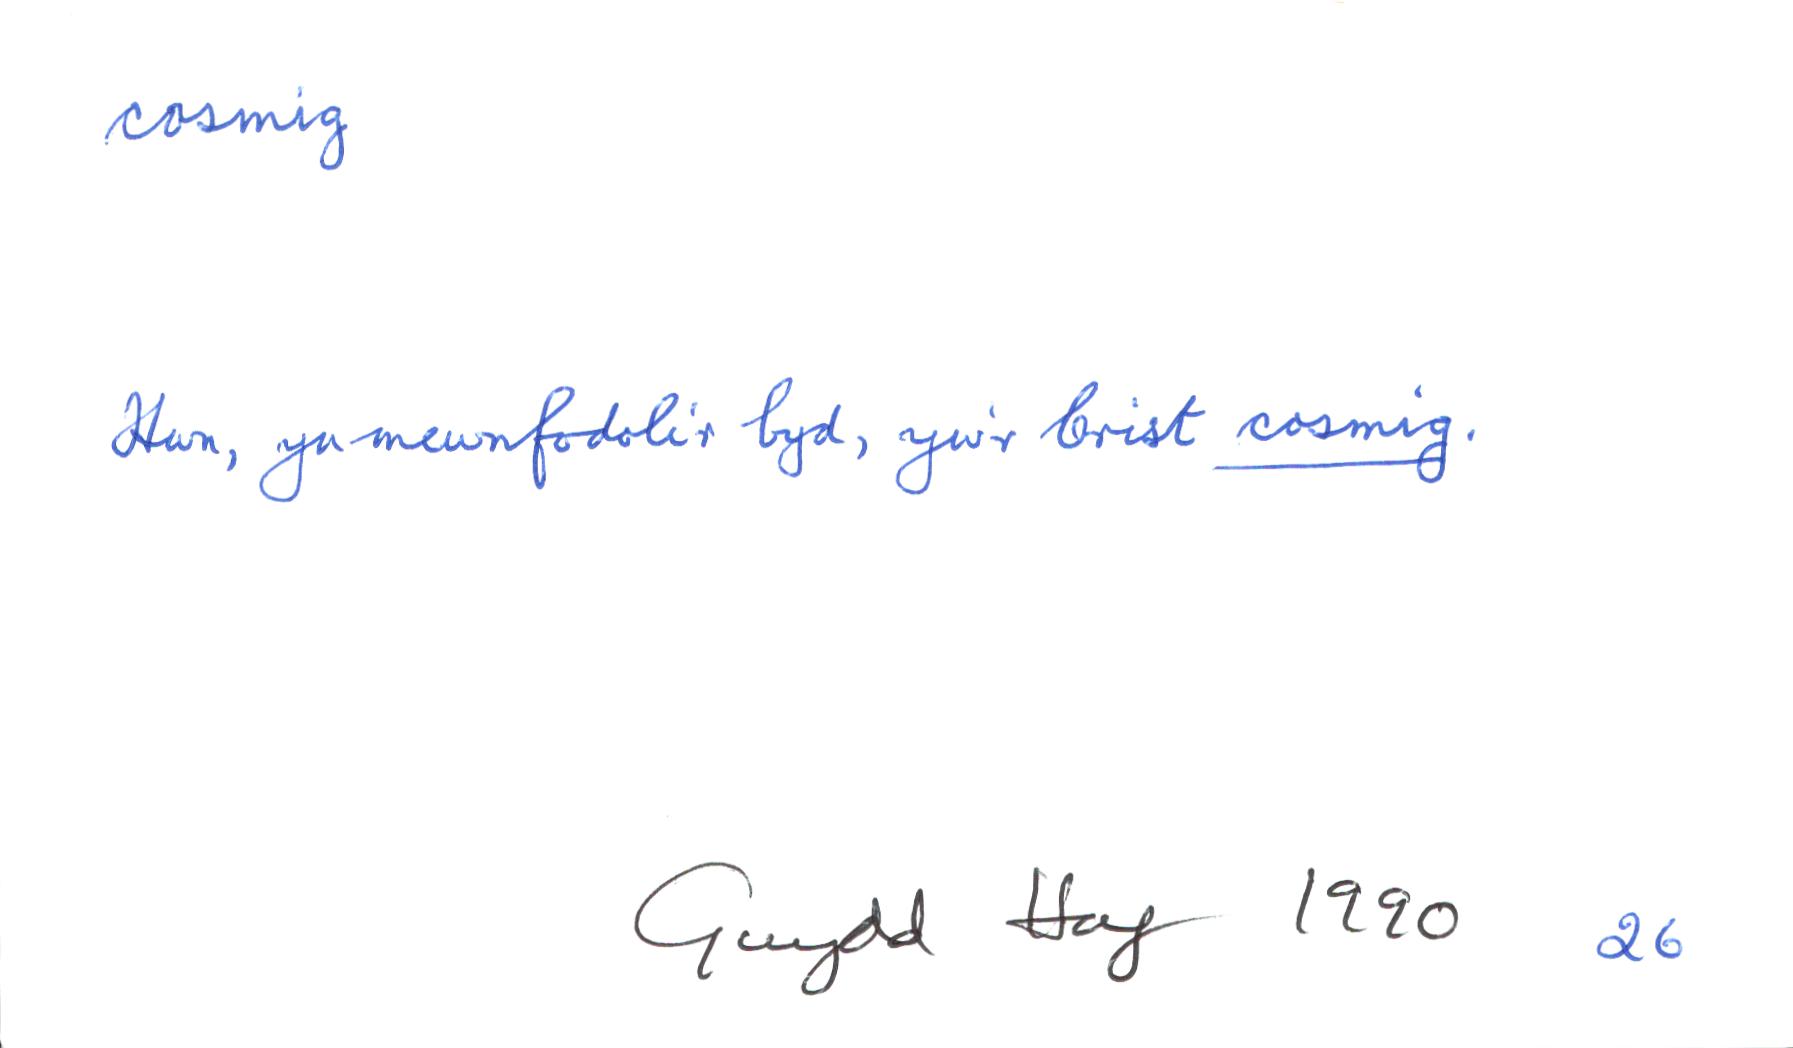 cosmig
Hwn, yn mewnfodoli'r byd, yw'r Crist cosmig.
Gwydd Hag 1990 26